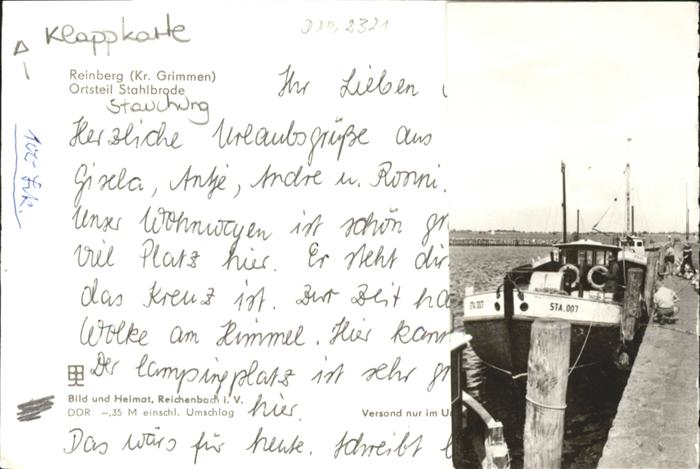 Klappkarte
DDR, 2321
Reinberg (Kr. Grimmen)
Ortsteil Stahlbrode
Stauchung
Ihr Lieben
Herzliche Urlaubsgrüße aus
Gisela, Antje, Andre u. Ronni.
Unser Wohnwagen ist schön
viel Platz hier. Er steht
das Kreuz ist. Zur Zeit
Wolke am Himmel. Hier
Der Campingplatz ist sehr
Bild und Heimat, Reichenbach i. V.
DDR –,35 M einschl. Umschlag
hier.
Versand nur im
Das wärs für heute. Schreibt
STA. 007
STA. 007